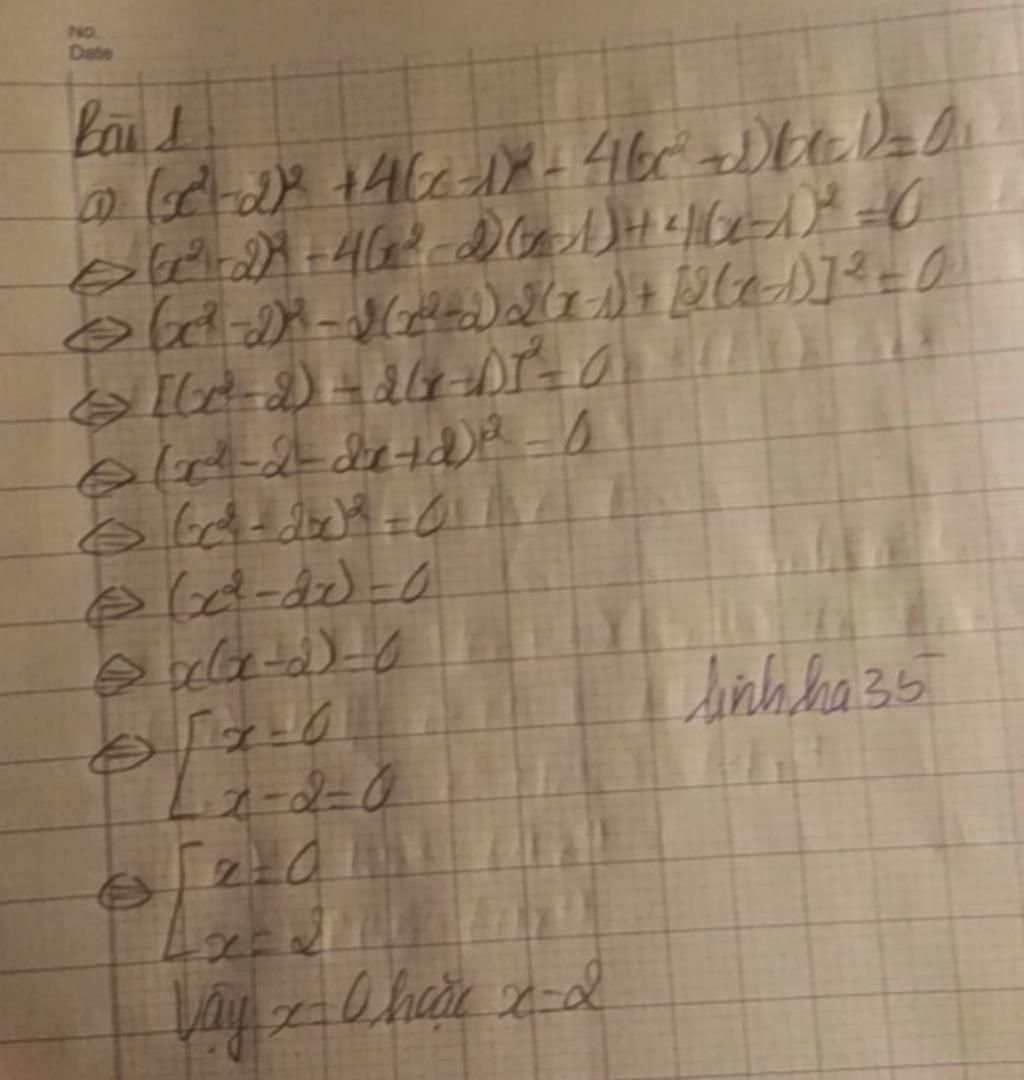 No.
Date
Bài 1
a) (x² - 2)² + 4(x - 1)² - 4(x² - 2)(x - 1) = 0
⇔ (x² - 2)² - 4(x² - 2)(x - 1) + 4(x - 1)² = 0
⇔ (x² - 2)² - 2(x² - 2)2(x - 1) + [2(x - 1)]² = 0
⇔ [(x² - 2) - 2(x - 1)]² = 0
⇔ (x² - 2 - 2x + 2)² = 0
⇔ (x² - 2x)² = 0
⇔ (x² - 2x) = 0
⇔ x(x - 2) = 0
linhha35
⇔ [ x = 0
x - 2 = 0
⇔ [ x = 0
x = 2
Vậy x = 0 hoặc x = 2